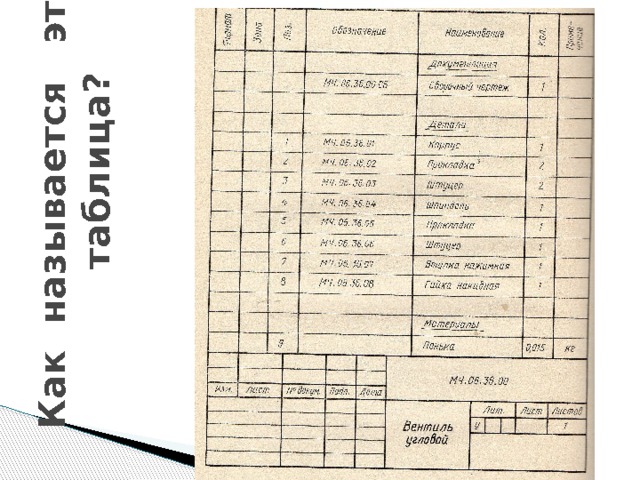 Как называется эт
таблица?
Формат Зона Поз. Обозначение Наименование Кол. Приме-
чание
Документация
МЧ.06.36.00 СБ Сборочный чертеж 1
Детали
1 МЧ.06.36.01 Корпус 1
2 МЧ.06.36.02 Прокладка 2
3 МЧ.06.36.03 Штуцер 2
4 МЧ.06.36.04 Шпиндель 1
5 МЧ.06.36.05 Прокладка 1
6 МЧ.06.36.06 1
7 МЧ.06.36.07 Втулка нажимная 1
8 МЧ.06.36.08 Гайка накидная 1
Материалы
9 0,015 кг
МЧ.06.36.00
Изм. Лист № докум. Подп. Дата
Вентиль
угловой
Лит. Лист Листов
У 1